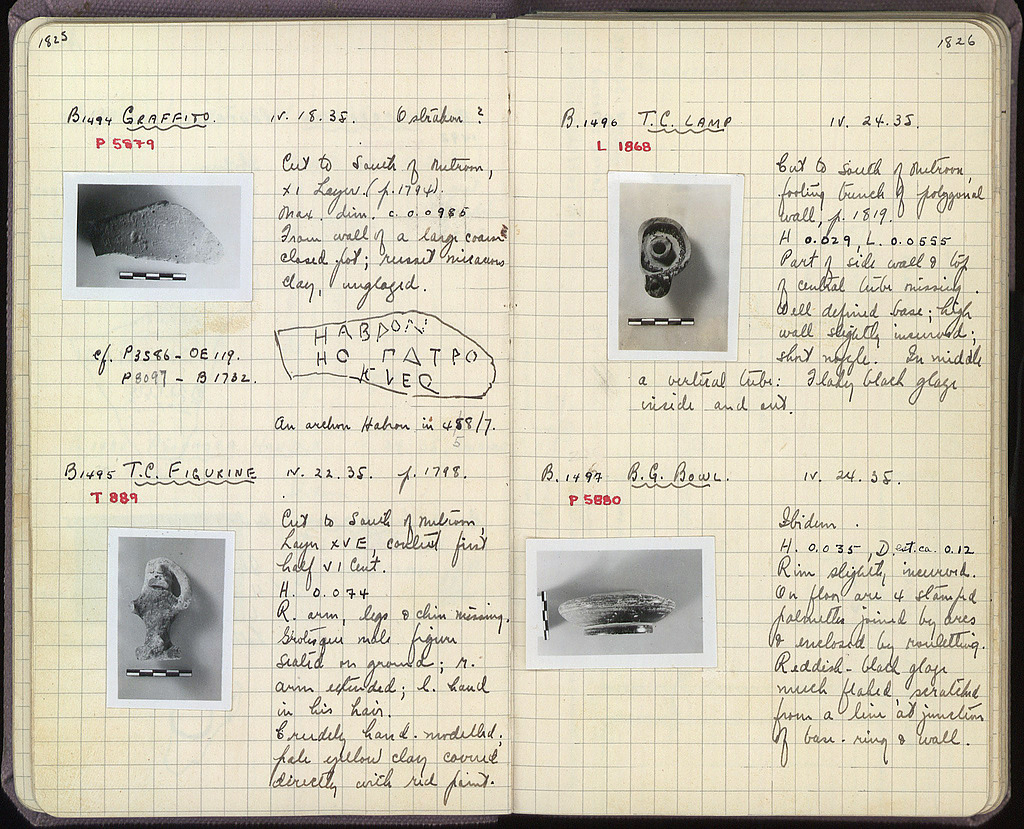 1825
B1494 GRAFFITO. IV. 18. 35. Ostrakon ?
P 5879
Cut to South of Metroon,
XI Layer. (p. 1794).
Max. dim. c. 0.0985
From wall of a large coarse
closed pot; russet micaceous
clay, unglazed.
ΗΑΒΡΟΝ
ΗΟ ΠΑΤΡΟ
ΚΛΕΟ
cf. P3586 - OE 119.
P8097 - B 1732.
An archon Habron in 458/7.
5
B1495 T.C. FIGURINE IV. 22. 35. p. 1798.
T 889
Cut to South of Metroon,
Layer XV E, context first
half VI cent.
H. 0.074
R. arm, legs & chin missing.
Grotesque male figure
seated on ground; r.
arm extended; l. hand
in his hair.
Crudely hand-modelled;
pale yellow clay covered
directly with red paint.
1826
B. 1496 T.C. LAMP IV. 24. 35.
L 1868
Cut to South of Metroon,
footing trench of polygonal
wall, p. 1819.
H 0.029, L. 0.0555
Part of side wall & top
of central tube missing.
Well defined base; high
wall slightly incurved;
short nozzle. In middle
a vertical tube: Flaky black glaze
inside and out.
B. 1497 B.G. BOWL. IV. 24. 35.
P 5880
Ibidem.
H. 0.035, D. est. ca. 0.12
Rim slightly incurved.
On floor are 4 stamped
palmettes joined by arcs
& enclosed by rouletting.
Reddish-black glaze
much flaked scratched
from a line at junction
of base-ring & wall.